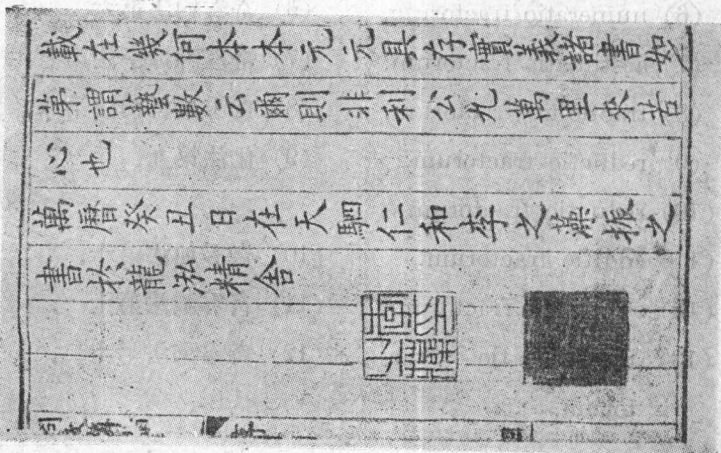 載在幾何本本元元具存實義諸書如
苐謂藝數云爾則非利公九萬里來苦
心也
萬曆癸丑日在天駟仁和李之藻振之
書於龍泓精舍